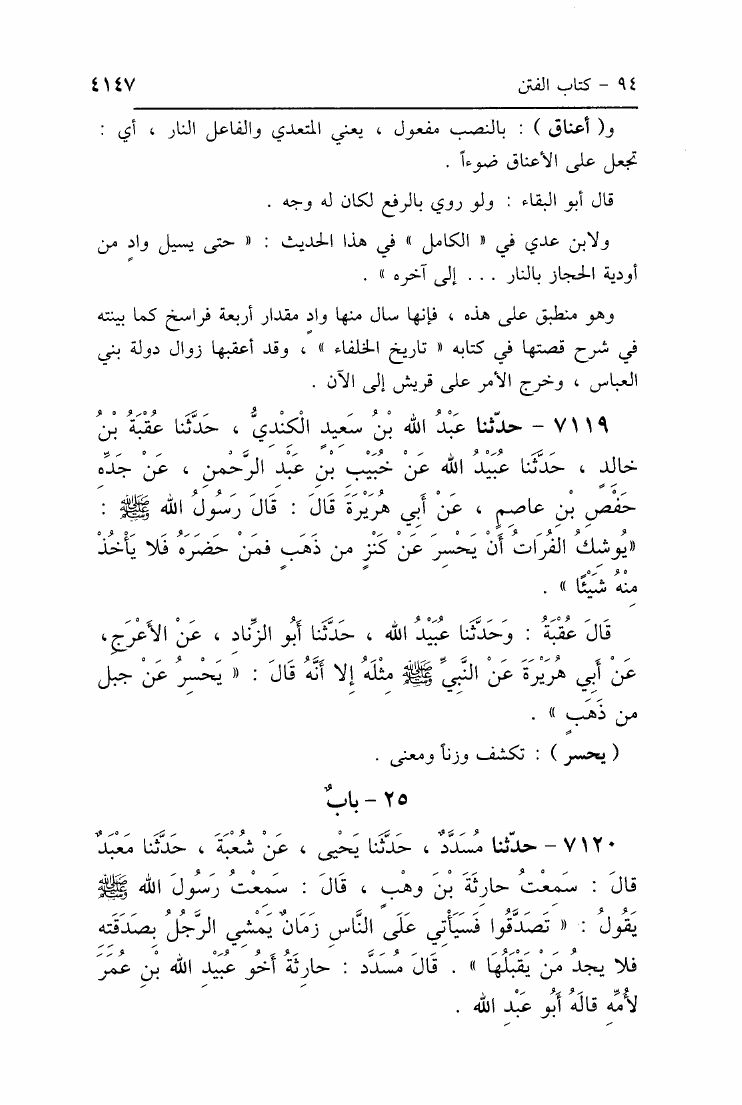 ٩٤ - كتاب الفتن ٤١٤٧
و( أعناق ) : بالنصب مفعول ، يعني المتعدي والفاعل النار ، أي :
تجعل على الأعناق ضوءاً .
قال أبو البقاء : ولو روي بالرفع لكان له وجه .
ولابن عدي في « الكامل » في هذا الحديث : « حتى يسيل وادٍ من
أودية الحجاز بالنار ... إلى آخره » .
وهو منطبق على هذه ، فإنها سال منها وادٍ مقدار أربعة فراسخ كما بينته
في شرح قصتها في كتابه « تاريخ الخلفاء » ، وقد أعقبها زوال دولة بني
العباس ، وخرج الأمر على قريش إلى الآن .
٧١١٩ - حدّثنا عَبْدُ الله بْنُ سَعِيدٍ الْكِنْدِيُّ ، حَدَّثَنا عُقْبَةُ بْنُ
خالِدٍ ، حَدَّثَنا عُبَيْدُ الله عَنْ خُبَيْبِ بْنِ عَبْدِ الرَّحْمنِ ، عَنْ جَدِّهِ
حَفْصِ بْنِ عاصِمٍ ، عَنْ أبي هُرَيْرَةَ قَالَ : قَالَ رَسُولُ الله ﷺ :
«يُوشكُ الفُرَاتُ أنْ يَحْسِرَ عَنْ كَنْزٍ من ذَهَبٍ فمَنْ حَضرَهُ فَلا يَأخُذْ
مِنْهُ شَيْئًا » .
قَالَ عُقْبَةُ : وَحَدَّثَنا عُبَيْدُ الله ، حَدَّثَنا أبُو الزِّنادِ ، عَنْ الأعْرَجِ،
عَنْ أبي هُرَيْرَةَ عَنْ النَّبِيِّ ﷺ مِثْلَهُ إلا أنَّهُ قَالَ : « يَحْسِرُ عَنْ جبلٍ
من ذَهَبٍ » .
( يحسر ) : تكشف وزناً ومعنى .
٢٥ - بابٌ
٧١٢٠ - حدّثنا مُسَدَّدٌ ، حَدَّثَنا يَحْيى ، عَنْ شُعْبَةَ ، حَدَّثَنا مَعْبَدٌ
قالَ : سَمِعْتُ حارِثَةَ بْنَ وهْبٍ ، قَالَ : سَمِعْتُ رَسُولَ الله ﷺ
يقُولُ : « تَصَدَّقُوا فَسَيَأْتي عَلَى النَّاسِ زمَانٌ يَمْشي الرَّجُلُ بِصَدَقَتِهِ
فلا يجدُ مَنْ يَقْبَلُهَا » . قَالَ مُسَدَّد : حارِثةُ أخُو عُبَيْدِ الله بْنِ عُمَرَ
لأُمِّهِ قالَهُ أبُو عَبْدِ الله .